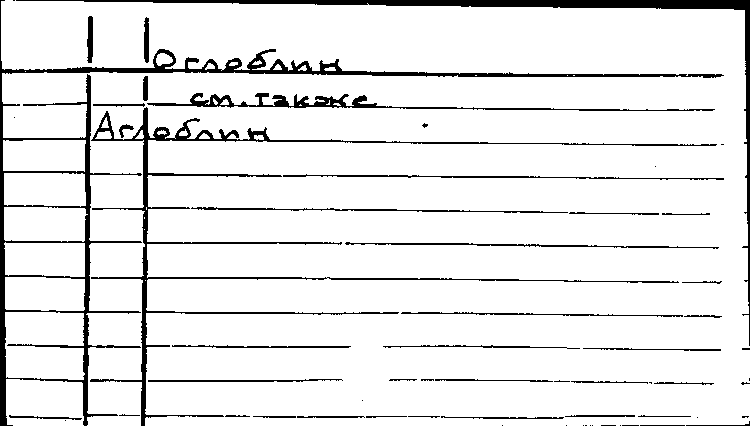 Оглоблин
см. также
Аглоблин